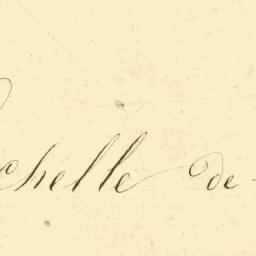 chelle de